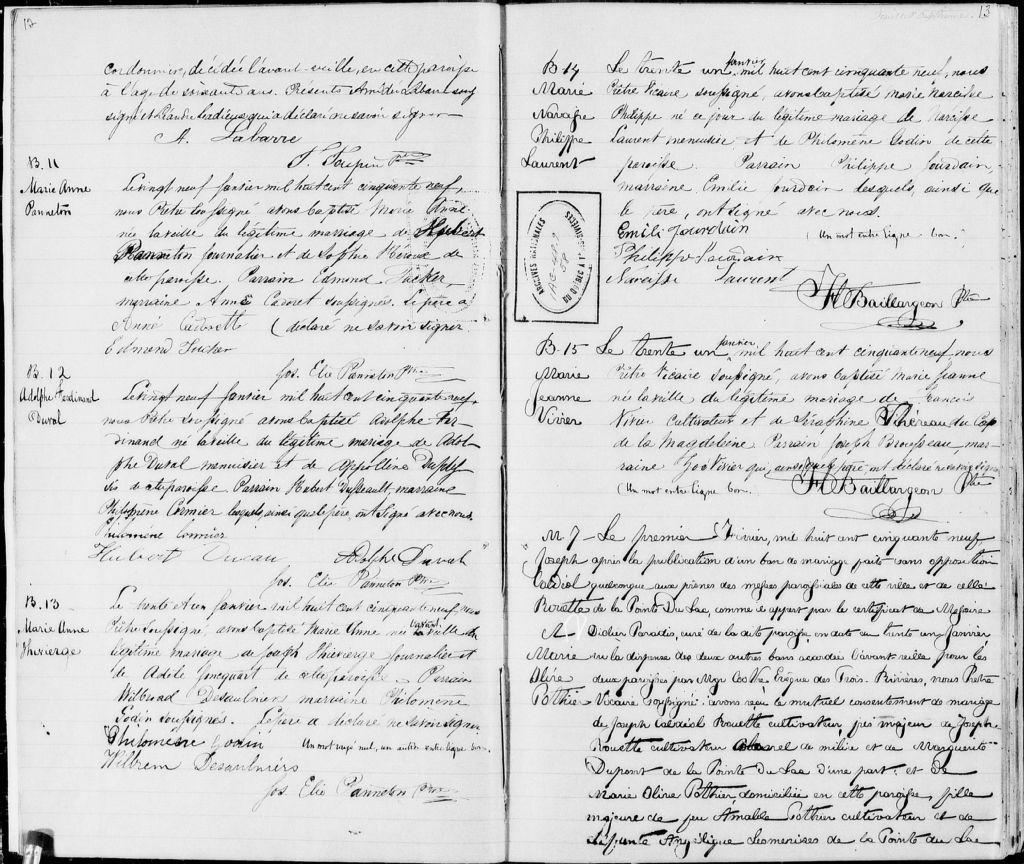 12
cordonnier, décédée l'avant-veille, en cette paroisse
à l'age de soixante ans. Présents Amédée Labarre sous
signé et Léandre qui a déclaré ne savoir signer
A. Labarre
F. Toupin Ptre
B. 11
Marie Anne
Panneton
Le vingt neuf Janvier mil huit cent cinquante neuf,
nous Prêtre soussigné avons baptisé Marie Anne
née la veille du légitime mariage de Hubert
Panneton journalier et de Sophie Héroux de
cette paroisse. Parrain Edmond Tucker,
marraine Anne Cadoret soussignés. Le père a
Anne Cadorette (déclaré ne savoir signer.
Edmond Tucker
Jos. Elie Panneton Ptre
B. 12
Adolphe Ferdinand
Duval
Le vingt neuf Janvier mil huit cent cinquante neuf,
nous Prêtre soussigné avons baptisé Adolphe Fer
dinand né la veille du légitime mariage de Adol
phe Duval menuisier et de Appolline Duples
sis de cette paroisse Parrain Hubert marraine
Philomène Cormier lesquels, ainsi que le père, ont signé avec nous.
Philomène Cormier
Hubert
Adolphe Duval
Jos. Elie Panneton Ptre
B. 13
Marie Anne
Thivierge
Le trente et un Janvier mil huit cent cinquante neuf, nous
Prêtre soussigné, avons baptisé Marie Anne née l'avant veille du
légitime mariage de Joseph Thivierge journalier et
de Adèle Jancquart de cette paroisse - Parrain
Wilbrod Desaulniers marraine Philomène
Godin soussignés. Le père a déclaré ne savoir signer
Philomène Godin Un mot rayé nul, un autre entre ligne bon.
Wilbrem Desaulniers
Jos. Elie Panneton Ptre
13
B. 14
Marie
Narcisse
Philippe
Laurent
Le trente un Janvier mil huit cent cinquante neuf, nous
Prêtre Vicaire soussigné, avons baptisé Marie Narcisse
Philippe né ce jour du légitime mariage de Narcisse
Laurent menuisier et de Philomène Godin de cette
paroisse. Parrain Philippe Jourdain,
marraine Emilie Jourdain lesquels, ainsi que
le père, ont signé avec nous.
Emili Jourdain (Un mot entre ligne bon.)
Philippe Jourdain
Narcisse Laurent
H Baillargeon Ptre
ARCHIVES NATIONALES
B. 15
Marie
Jeanne
Vivier
Le trente un Janvier mil huit cent cinquante neuf, nous
Prêtre Vicaire soussigné, avons baptisé Marie Jeanne
née la veille du légitime mariage de Francis
Vivier cultivateur et de Séraphine Théreau du Cap
de la Magdeleine Parrain Joseph Brousseau, mar-
raine Zoé Vivier qui, ainsi que le père, ont déclaré ne savoir signer
(Un mot entre ligne bon.
H Baillargeon Ptre
M 7
Joseph
Caldiol
Rouette
&
Marie
Olire
Pothier
Le premier Février, mil huit cent cinquante neuf
après la publication d'un ban de mariage faite sans opposition
quelconque aux prônes des messes paroissiales de cette ville et de celle
de la Pointe Du Lac, comme il appert par le certificat de Messire
Didier Paradis, curé de la dite paroisse en date du trente un Janvier
vu la dispense des deux autres bans accordée l'avant-veille pour les
deux paroisses par Mgr Cooke Evêque des Trois-Rivières, nous Prêtre
Vicaire soussigné avons reçu le mutuel consentement de mariage
de Joseph Caldiol Rouette cultivateur fils majeur de Joseph
Rouette cultivateur colonel de milice et de Marguerite
Dupont de la Pointe Du Lac d'une part; et de
Marie Olire Pothier domiciliée en cette paroisse, fille
majeure de feu Amable Pothier cultivateur et de
défunte Angélique Lesmerises de la Pointe du Lac